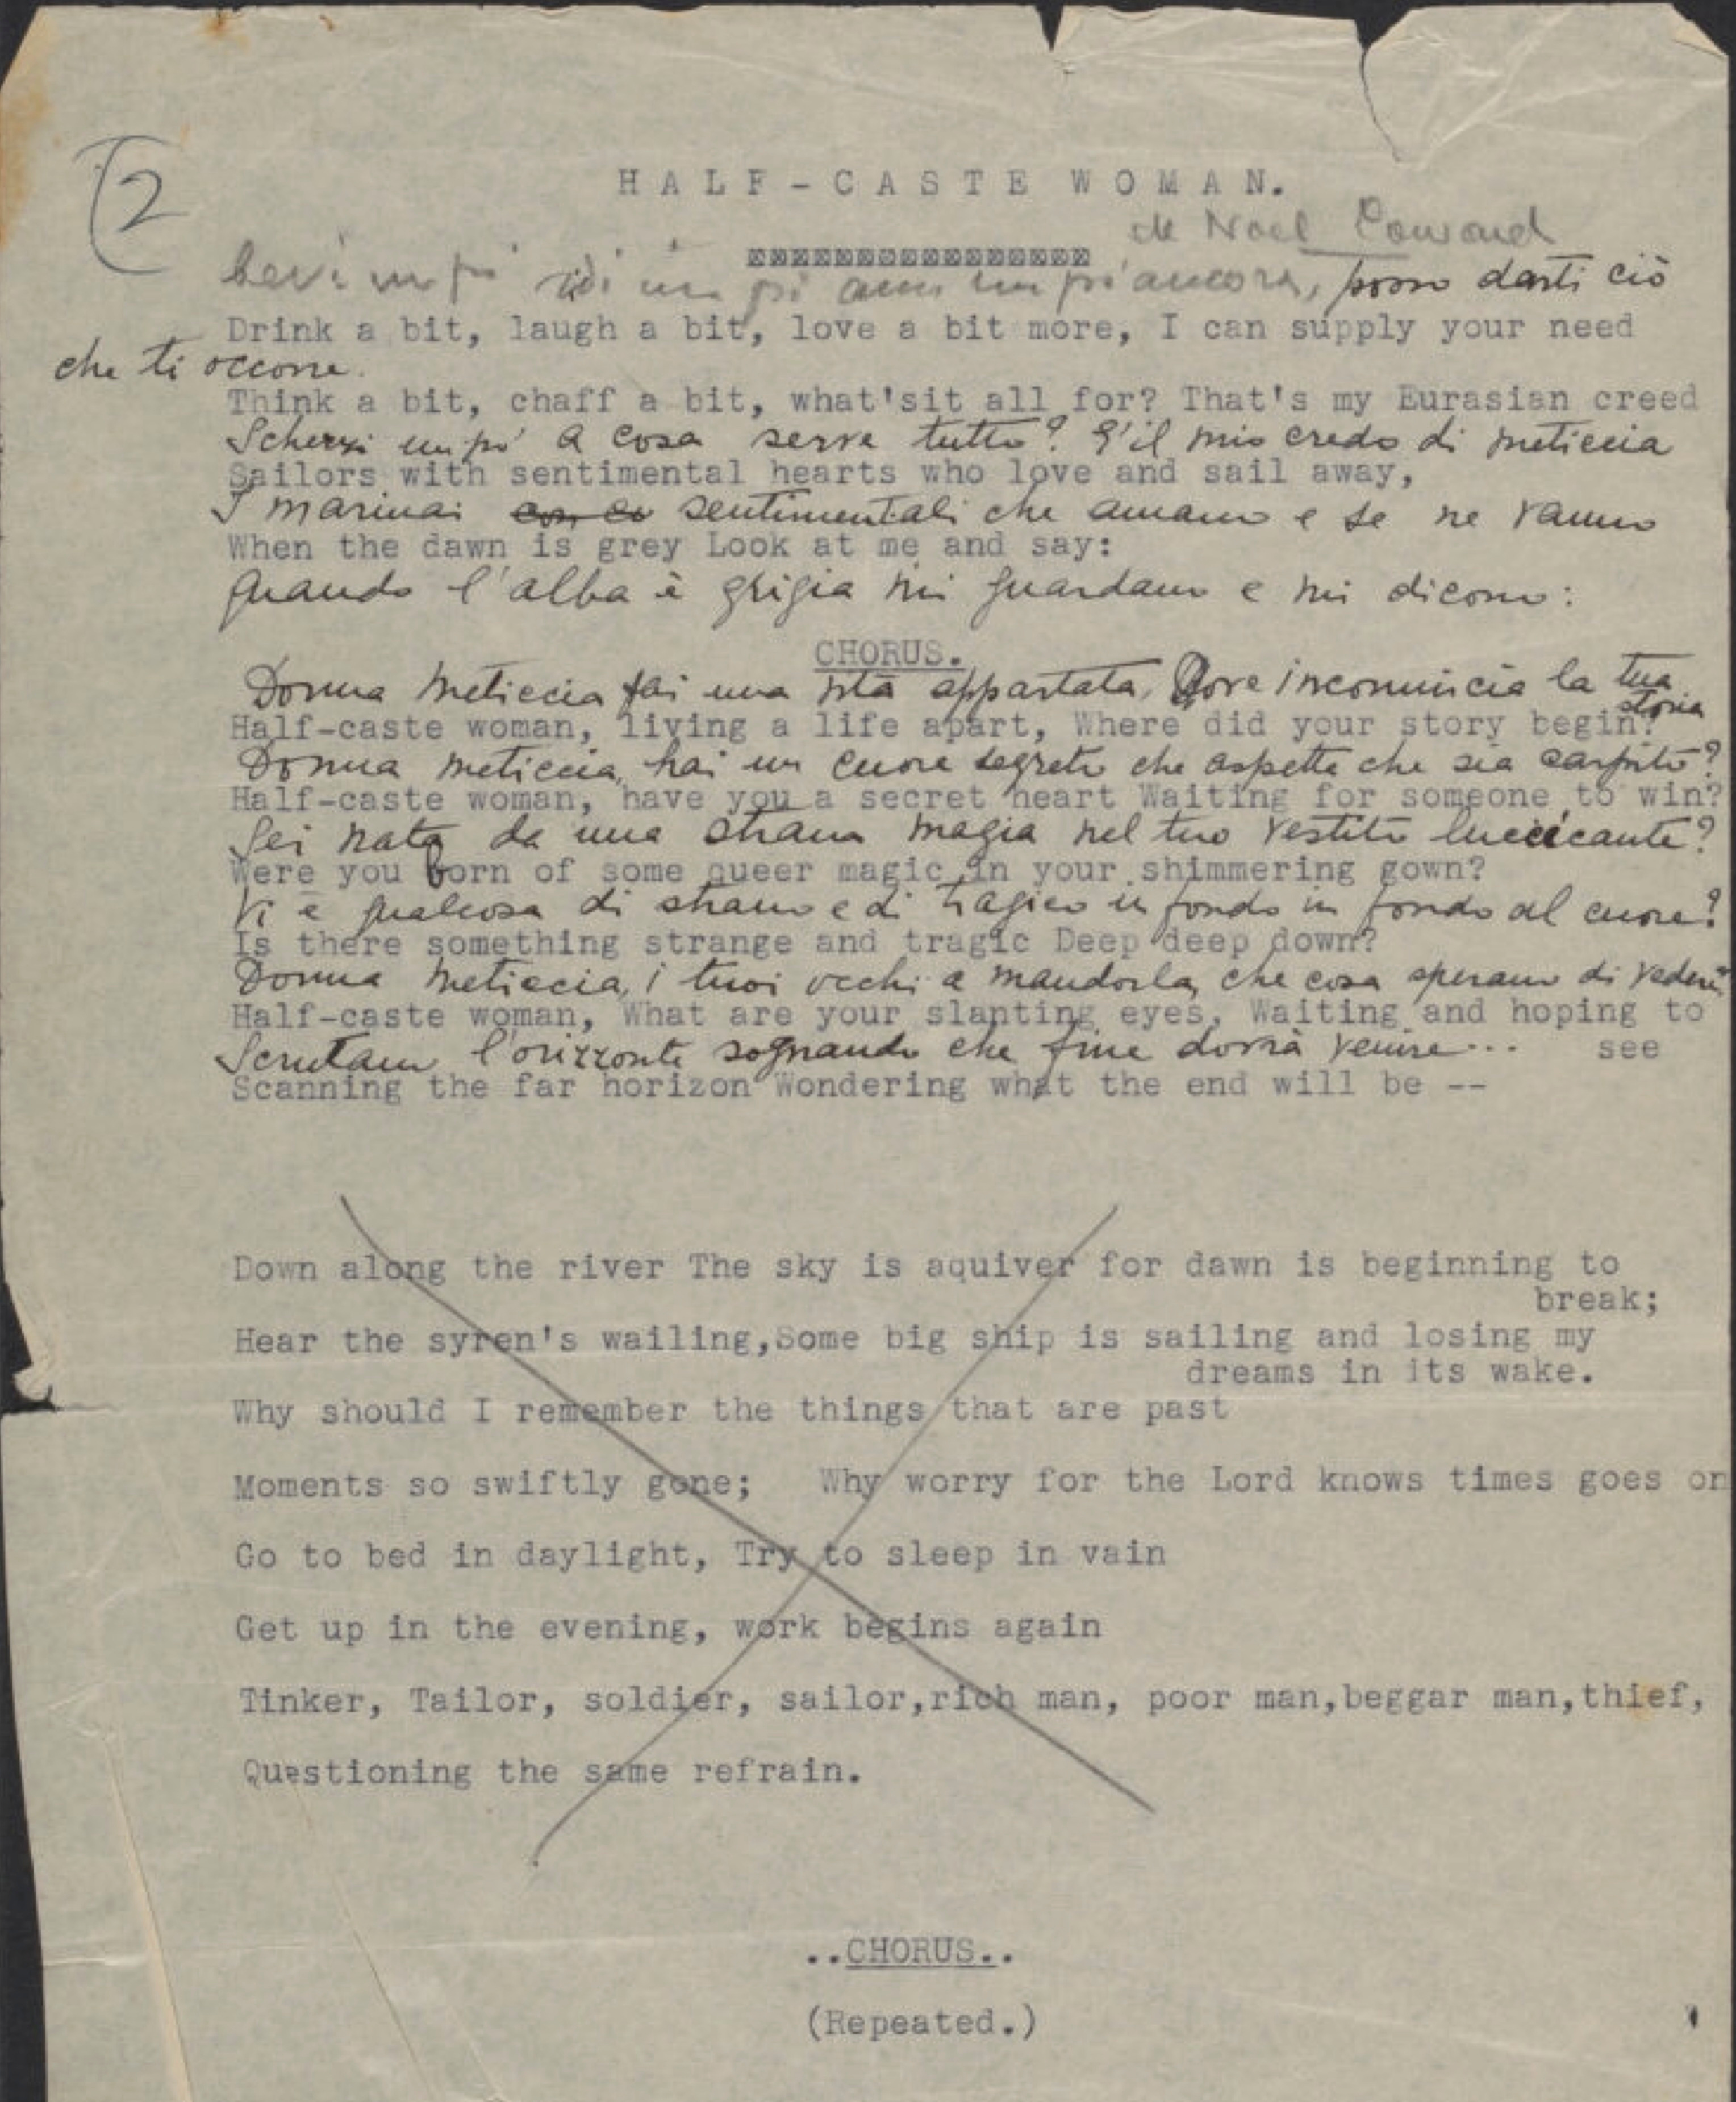 2
HALF-CASTE WOMAN.
de Noel Coward
bevi un pò ridi un pò ama un pò ancora, posso darti ciò
Drink a bit, laugh a bit, love a bit more, I can supply your need
che ti occorre.
Think a bit, chaff a bit, what'sit all for? That's my Eurasian creed
Scherzi un pò a cosa serve tutto? E'il mio credo di meticcia
Sailors with sentimental hearts who love and sail away,
I marinai con cu sentimentali che amano e se ne vanno
When the dawn is grey Look at me and say:
quando l'alba è grigia mi guardano e mi dicono:
CHORUS.
Donna meticcia fai una vita appartata, Dove incomincia la tua
storia
Half-caste woman, living a life apart, Where did your story begin?
Donna meticcia, hai un cuore segreto che aspetta che sia carpito?
Half-caste woman, have you a secret heart Waiting for someone to win?
Sei nata da una strana magia nel tuo vestito luccicante?
Were you born of some queer magic in your shimmering gown?
Vi è qualcosa di strano e di tragico in fondo in fondo al cuore?
Is there something strange and tragic Deep deep down?
Donna meticcia, i tuoi occhi a mandorla, che cosa sperano di vedere?
Half-caste woman, What are your slanting eyes, Waiting and hoping to
see
Scrutano l'orizzonte sognando che fine dovrà venire...
Scanning the far horizon Wondering what the end will be --
Down along the river The sky is aquiver for dawn is beginning to
break;
Hear the syren's wailing,Some big ship is sailing and losing my
dreams in its wake.
Why should I remember the things that are past
Moments so swiftly gone; Why worry for the Lord knows times goes on
Go to bed in daylight, Try to sleep in vain
Get up in the evening, work begins again
Tinker, Tailor, soldier, sailor,rich man, poor man,beggar man,thief,
Questioning the same refrain.
..CHORUS..
(Repeated.)